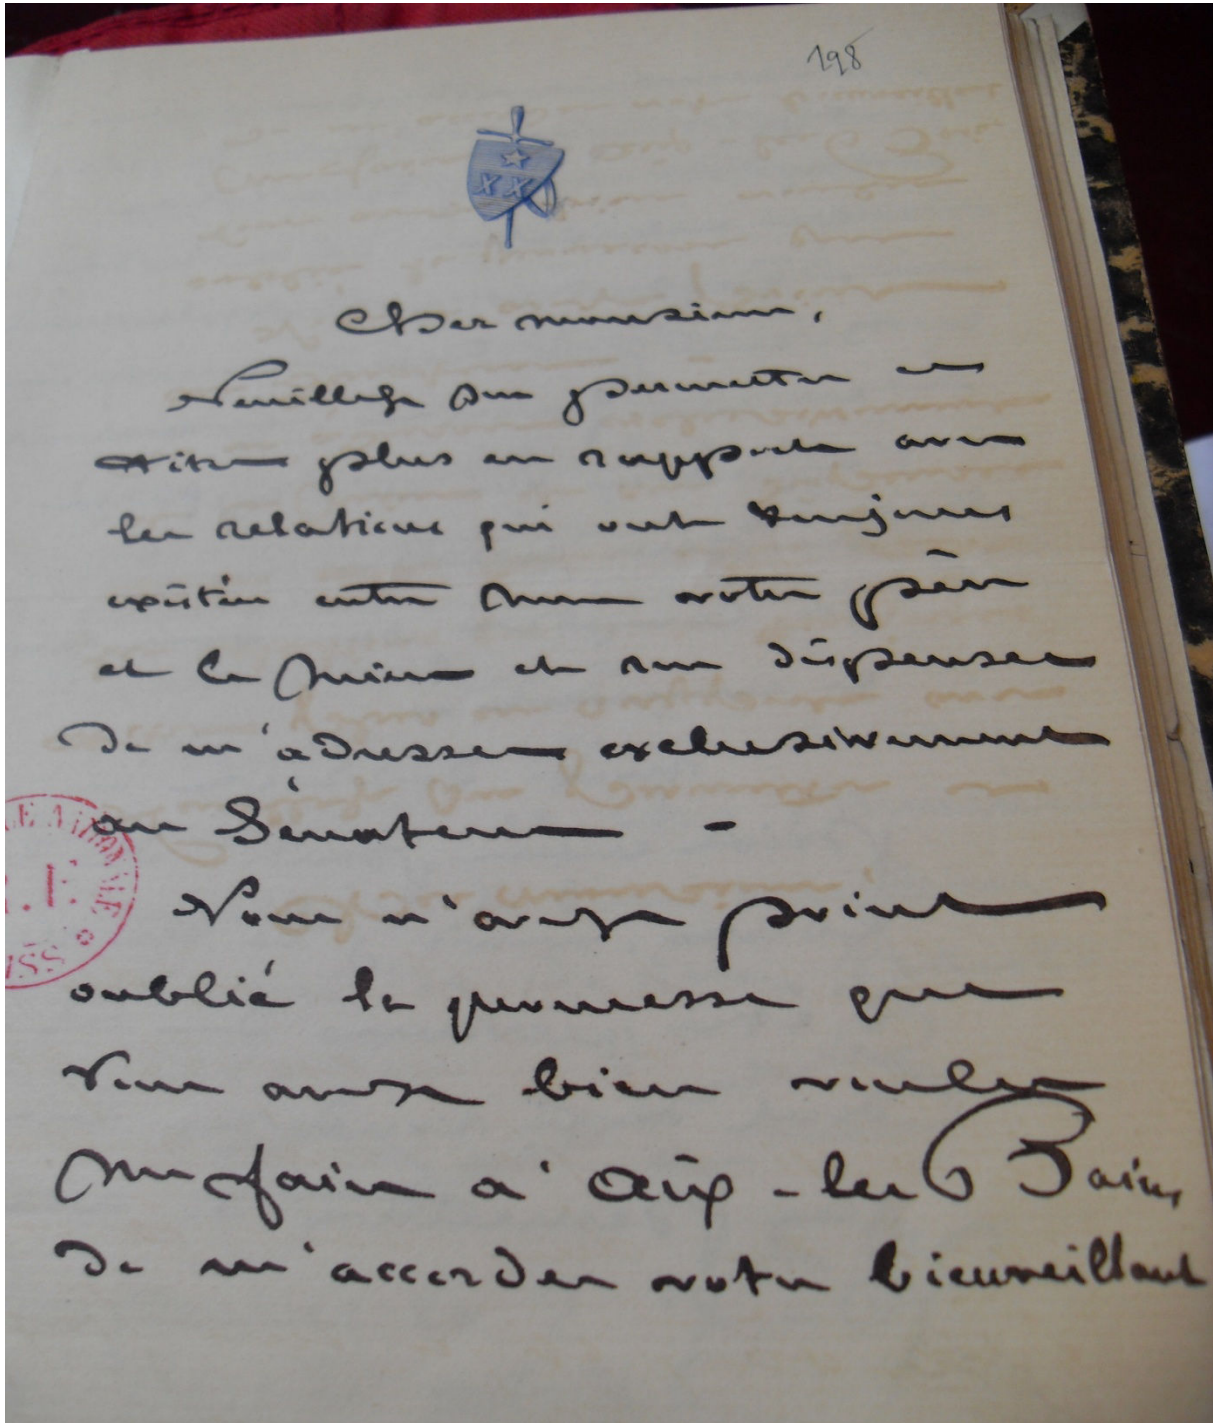 198
Cher monsieur,
Veuillez me permettre ce
titre plus en rapports avec
les relations qui ont toujours
existées entre votre père
et le mien et me dispenser
de m'adresser exclusivement
au Sénateur -
Vous n'avez point
oublié la promesse que
Vous avez bien voulu
me faire à Aix-les Bains
de m'accorder votre bienveillant